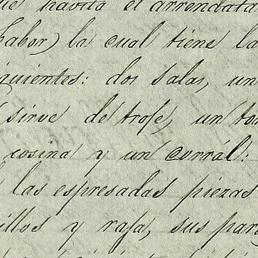 que havita el arrendata
habor) la cual tiene la
iguientes: dos salas, un
sirve de trofe, un to
cosina y un corral:
las espresadas piezas
illos y rafa, sus par